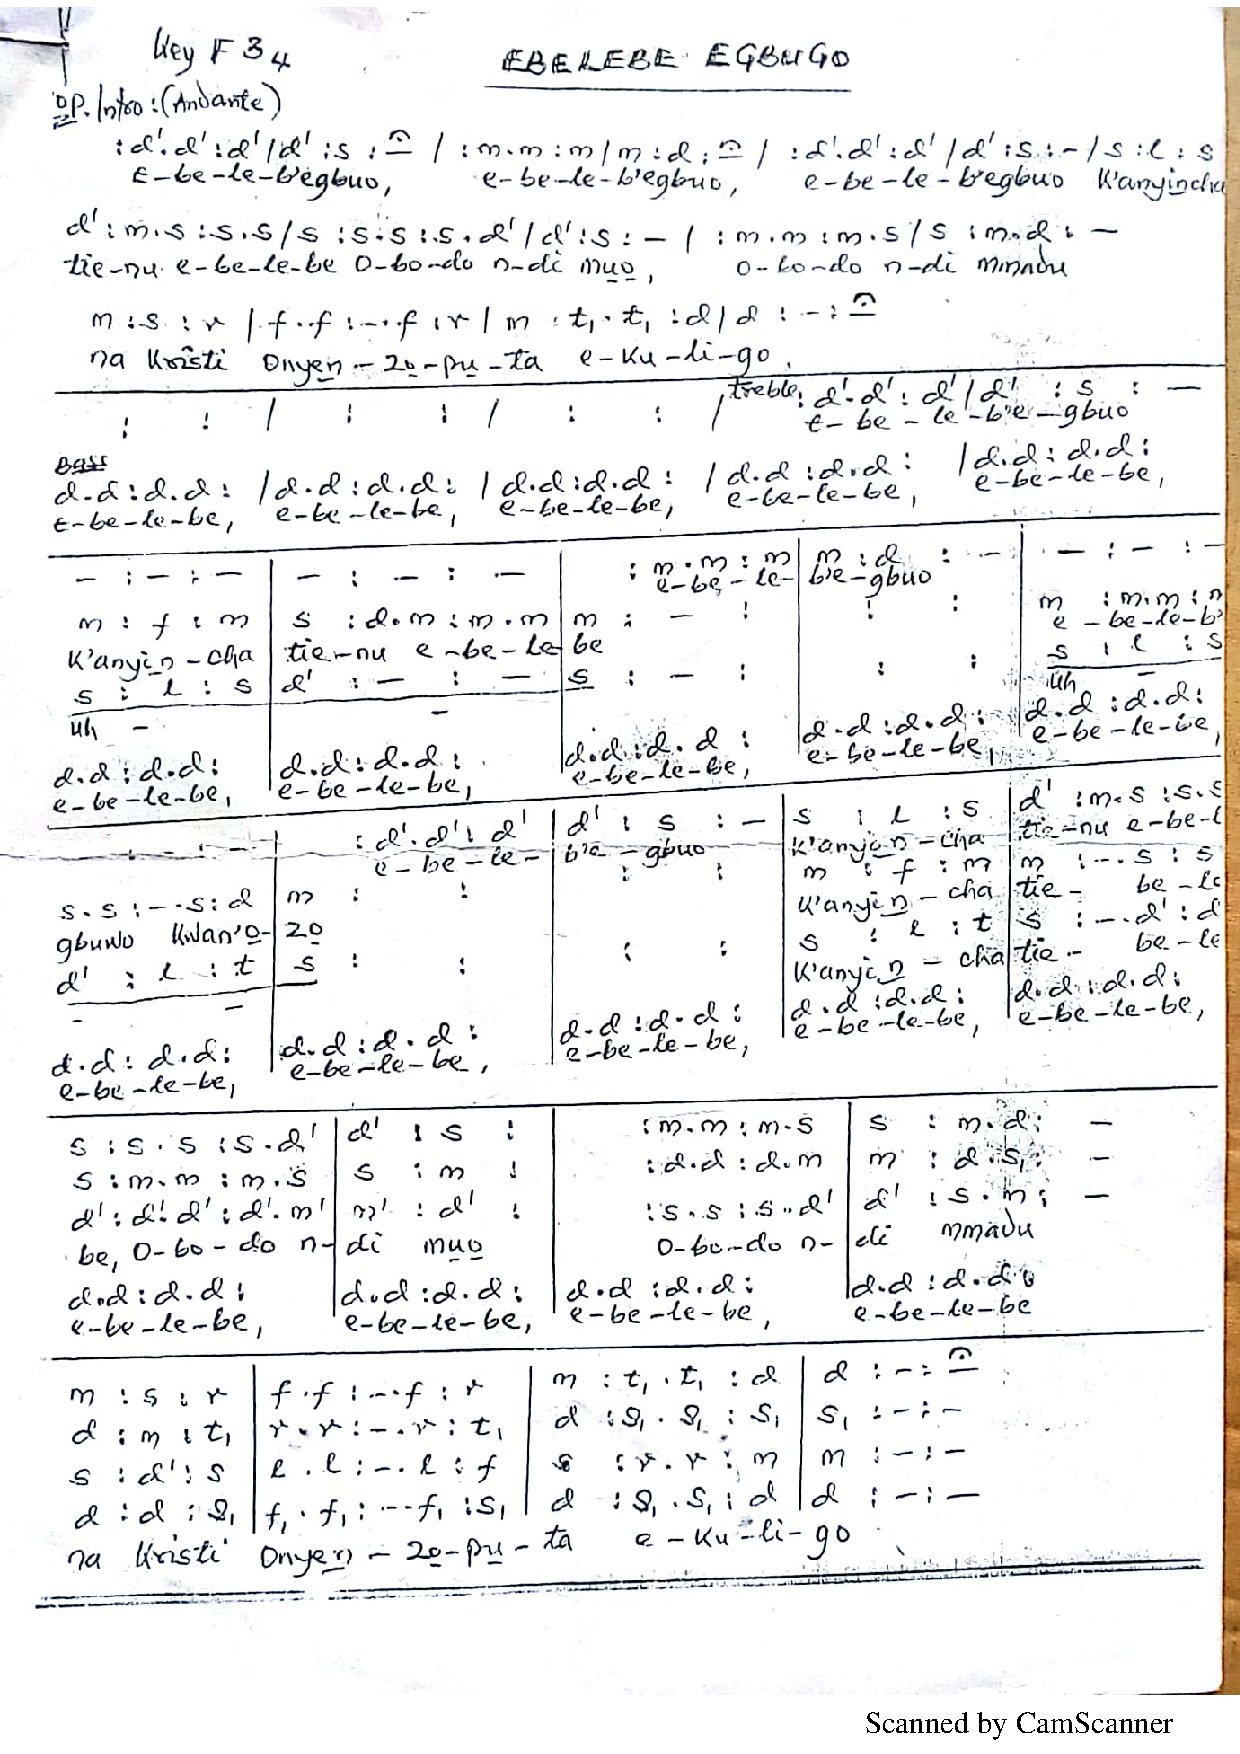 Key F 34
EBELEBE EGBUGO
OP. Intro: (Andante)
:d'.d':d'/d':s:- / :m.m:m/m:d:- / :d'.d':d'/d':s:-/s:l:s
E-be-le-b'egbuo, e-be-le-b'egbuo, e-be-le-b'egbuo K'anyincha
d':m.s:s.s/s:s.s:s.d'/d':s:-/ :m.m:m.s/s:m.d:-
tie-nu e-be-le-be O-bo-do n-di muo, O-bo-do n-di mmadu
m:s:r/f.f:-.f:r/m:t₁.t₁:d/d:-:-
na Kristi Onyen-zo-pu-ta e-Ku-li-go,
treble: d'.d':d'/d':s:-
: : / : : / : : /
E-be-le-b'e-gbuo
Bass
d.d:d.d: /d.d:d.d: /d.d:d.d: /d.d:d.d: /d.d:d.d:
E-be-le-be, e-be-le-be, e-be-le-be, e-be-le-be, e-be-le-be,
-:-:- -:-:- :m.m:m m:d:- -:-:-
e-be-le- b'e-gbuo
m:f:m s:d.m:m.m m:-: : : m:m.m:m
K'anyin-cha tie-nu e-be-le-be e-be-le-b'
s:l:s d':-:- s:-: : : s:l:s
uh - - uh -
d.d:d.d: d.d:d.d: d.d:d.d: d.d:d.d: d.d:d.d:
e-be-le-be, e-be-le-be, e-be-le-be, e-be-le-be, e-be-le-be,
-:-:- :d'.d':d' d':s:- s:l:s d':m.s:s.s
e-be-le- b'e-gbuo K'anyin-cha tie-nu e-be-l
: : m:f:m m:-.s:s
s.s:-.s:d m: : K'anyin-cha tie- be-le
gbuwo Kwan'o-zo
d':l:t s: : : : s:l:t s:-.d':d'
- - K'anyin-cha tie- be-le
d.d:d.d: d.d:d.d: d.d:d.d: d.d:d.d: d.d:d.d:
e-be-le-be, e-be-le-be, e-be-le-be, e-be-le-be, e-be-le-be,
s:s.s:s.d' d':s: :m.m:m.s s:m.d:-
s:m.m:m.s s:m: :d.d:d.m m:d.s₁:-
d':d'.d':d'.m' m':d': :s.s:s.d' d':s.m:-
be, O-bo-do n-di muo O-bo-do n-di mmadu
d.d:d.d: d.d:d.d: d.d:d.d: d.d:d.d:
e-be-le-be, e-be-le-be, e-be-le-be, e-be-le-be
m:s:r f.f:-.f:r m:t₁.t₁:d d:-:-
d:m:t₁ r.r:-.r:t₁ d:s₁.s₁:s₁ s₁:-:-
s:d':s l.l:-.l:f s:r.r:m m:-:-
d:d:s₁ f₁.f₁:-.f₁:s₁ d:s₁.s₁:d d:-:-
na Kristi Onyen-zo-pu-ta e-Ku-li-go
Scanned by CamScanner